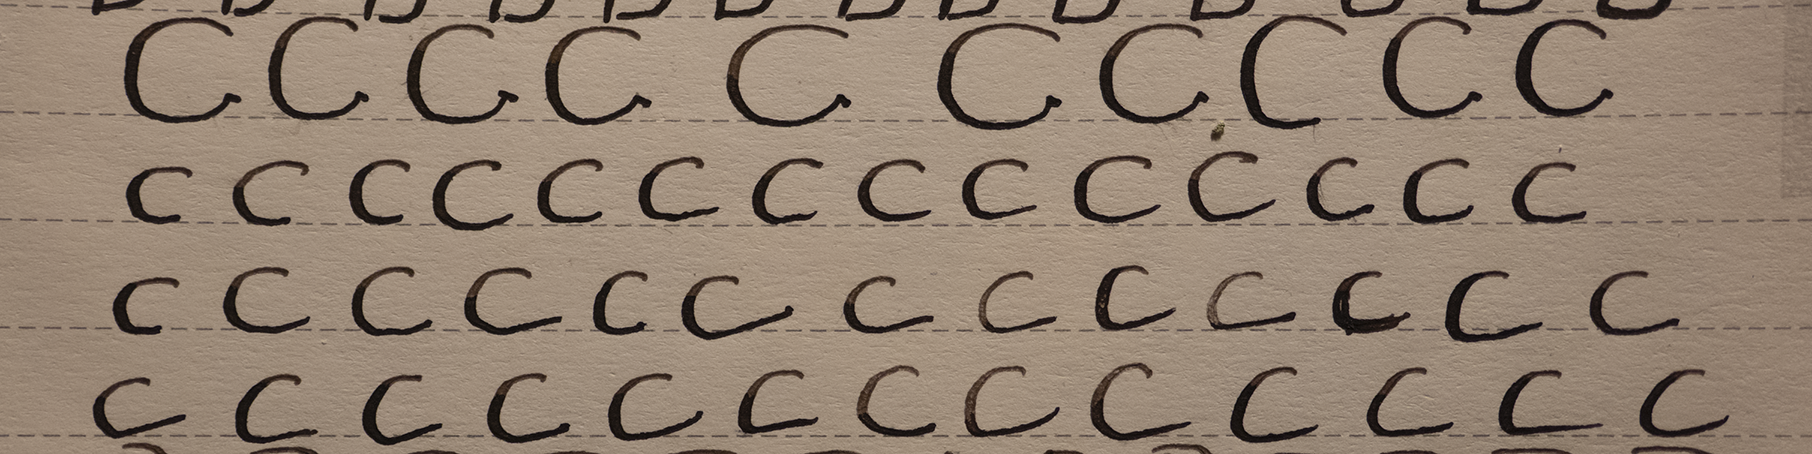 C C C C C C C C C C
c c c c c c c c c c c c c c
c c c c c c c c c c c c c
c c c c c c c c c c c c c